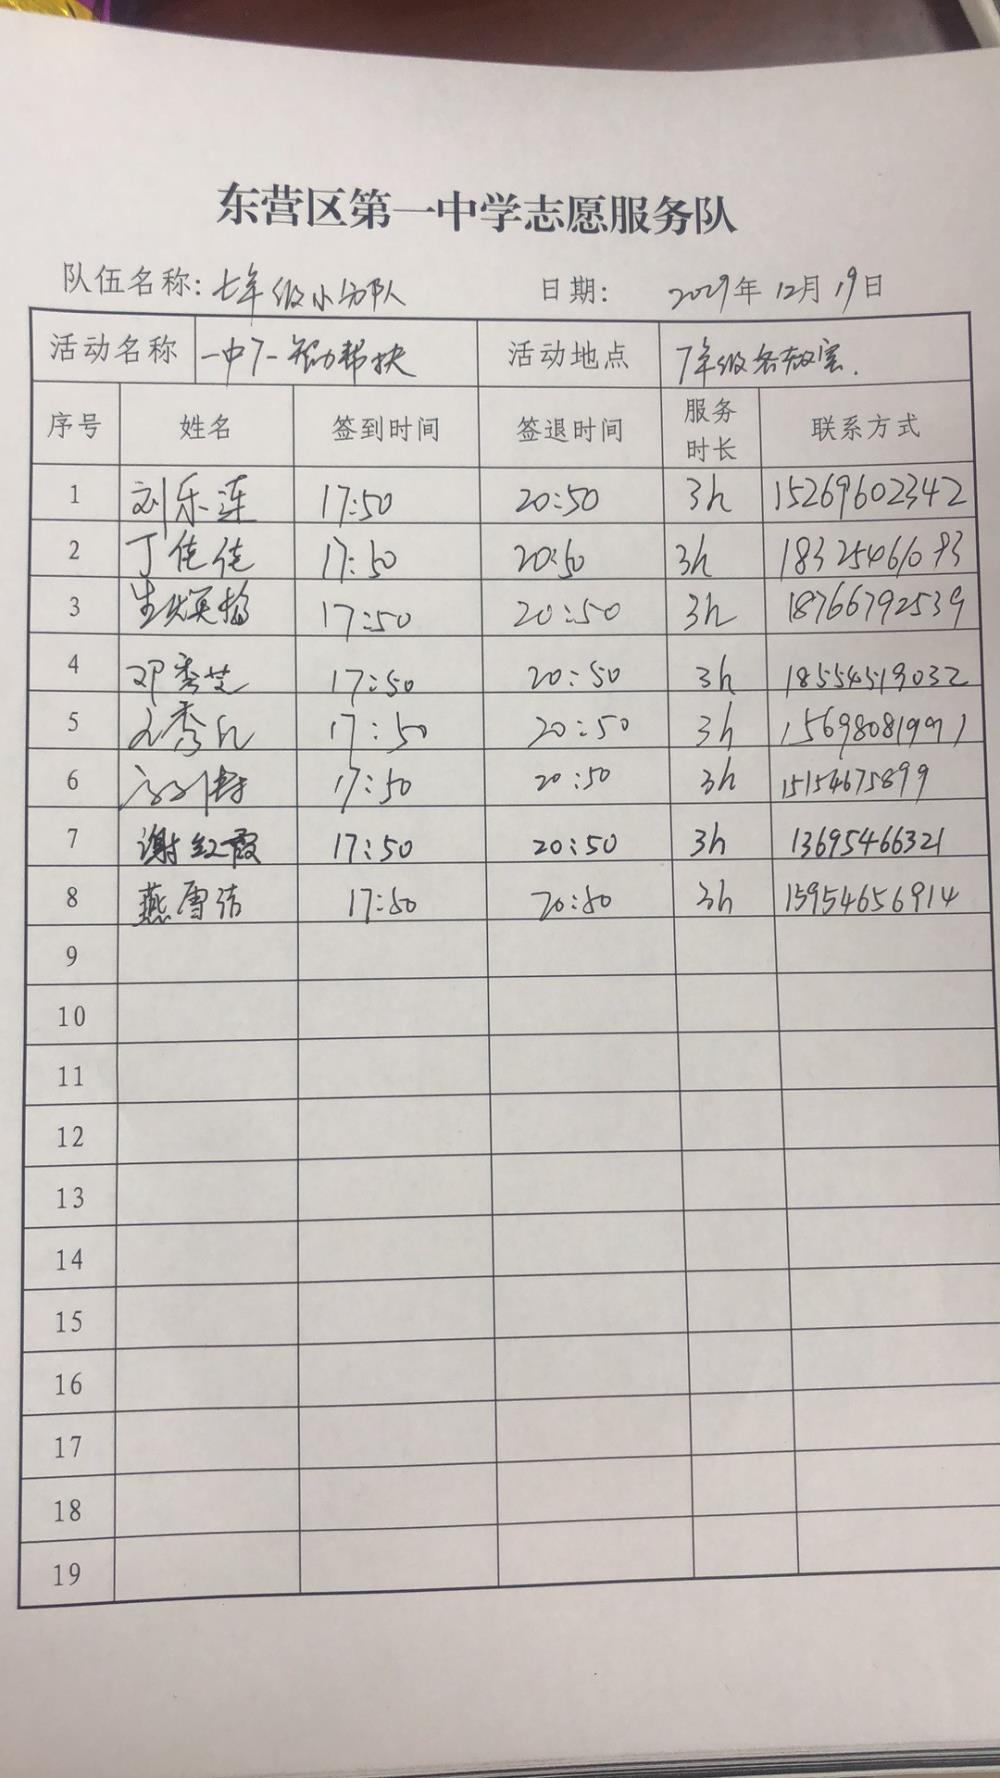 东营区第一中学志愿服务队
队伍名称: 七年级小分队 日期: 年 12月 19日
活动名称 一中 帮扶 活动地点 7年级各教室.
序号 姓名 签到时间 签退时间 服务时长 联系方式
1 刘乐莲 17:50 20:50 3h 15269602342
2 丁佳佳 17:50 20:50 3h
3 17:50 20:50 3h 18766792539
4 邓秀芝 17:50 20:50 3h 18554519032
5 秀 17:50 20:50 3h
6 17:50 20:50 3h 15154675899
7 谢红霞 17:50 20:50 3h 13695466321
8 燕雪洁 17:50 20:50 3h 15954656914
9
10
11
12
13
14
15
16
17
18
19